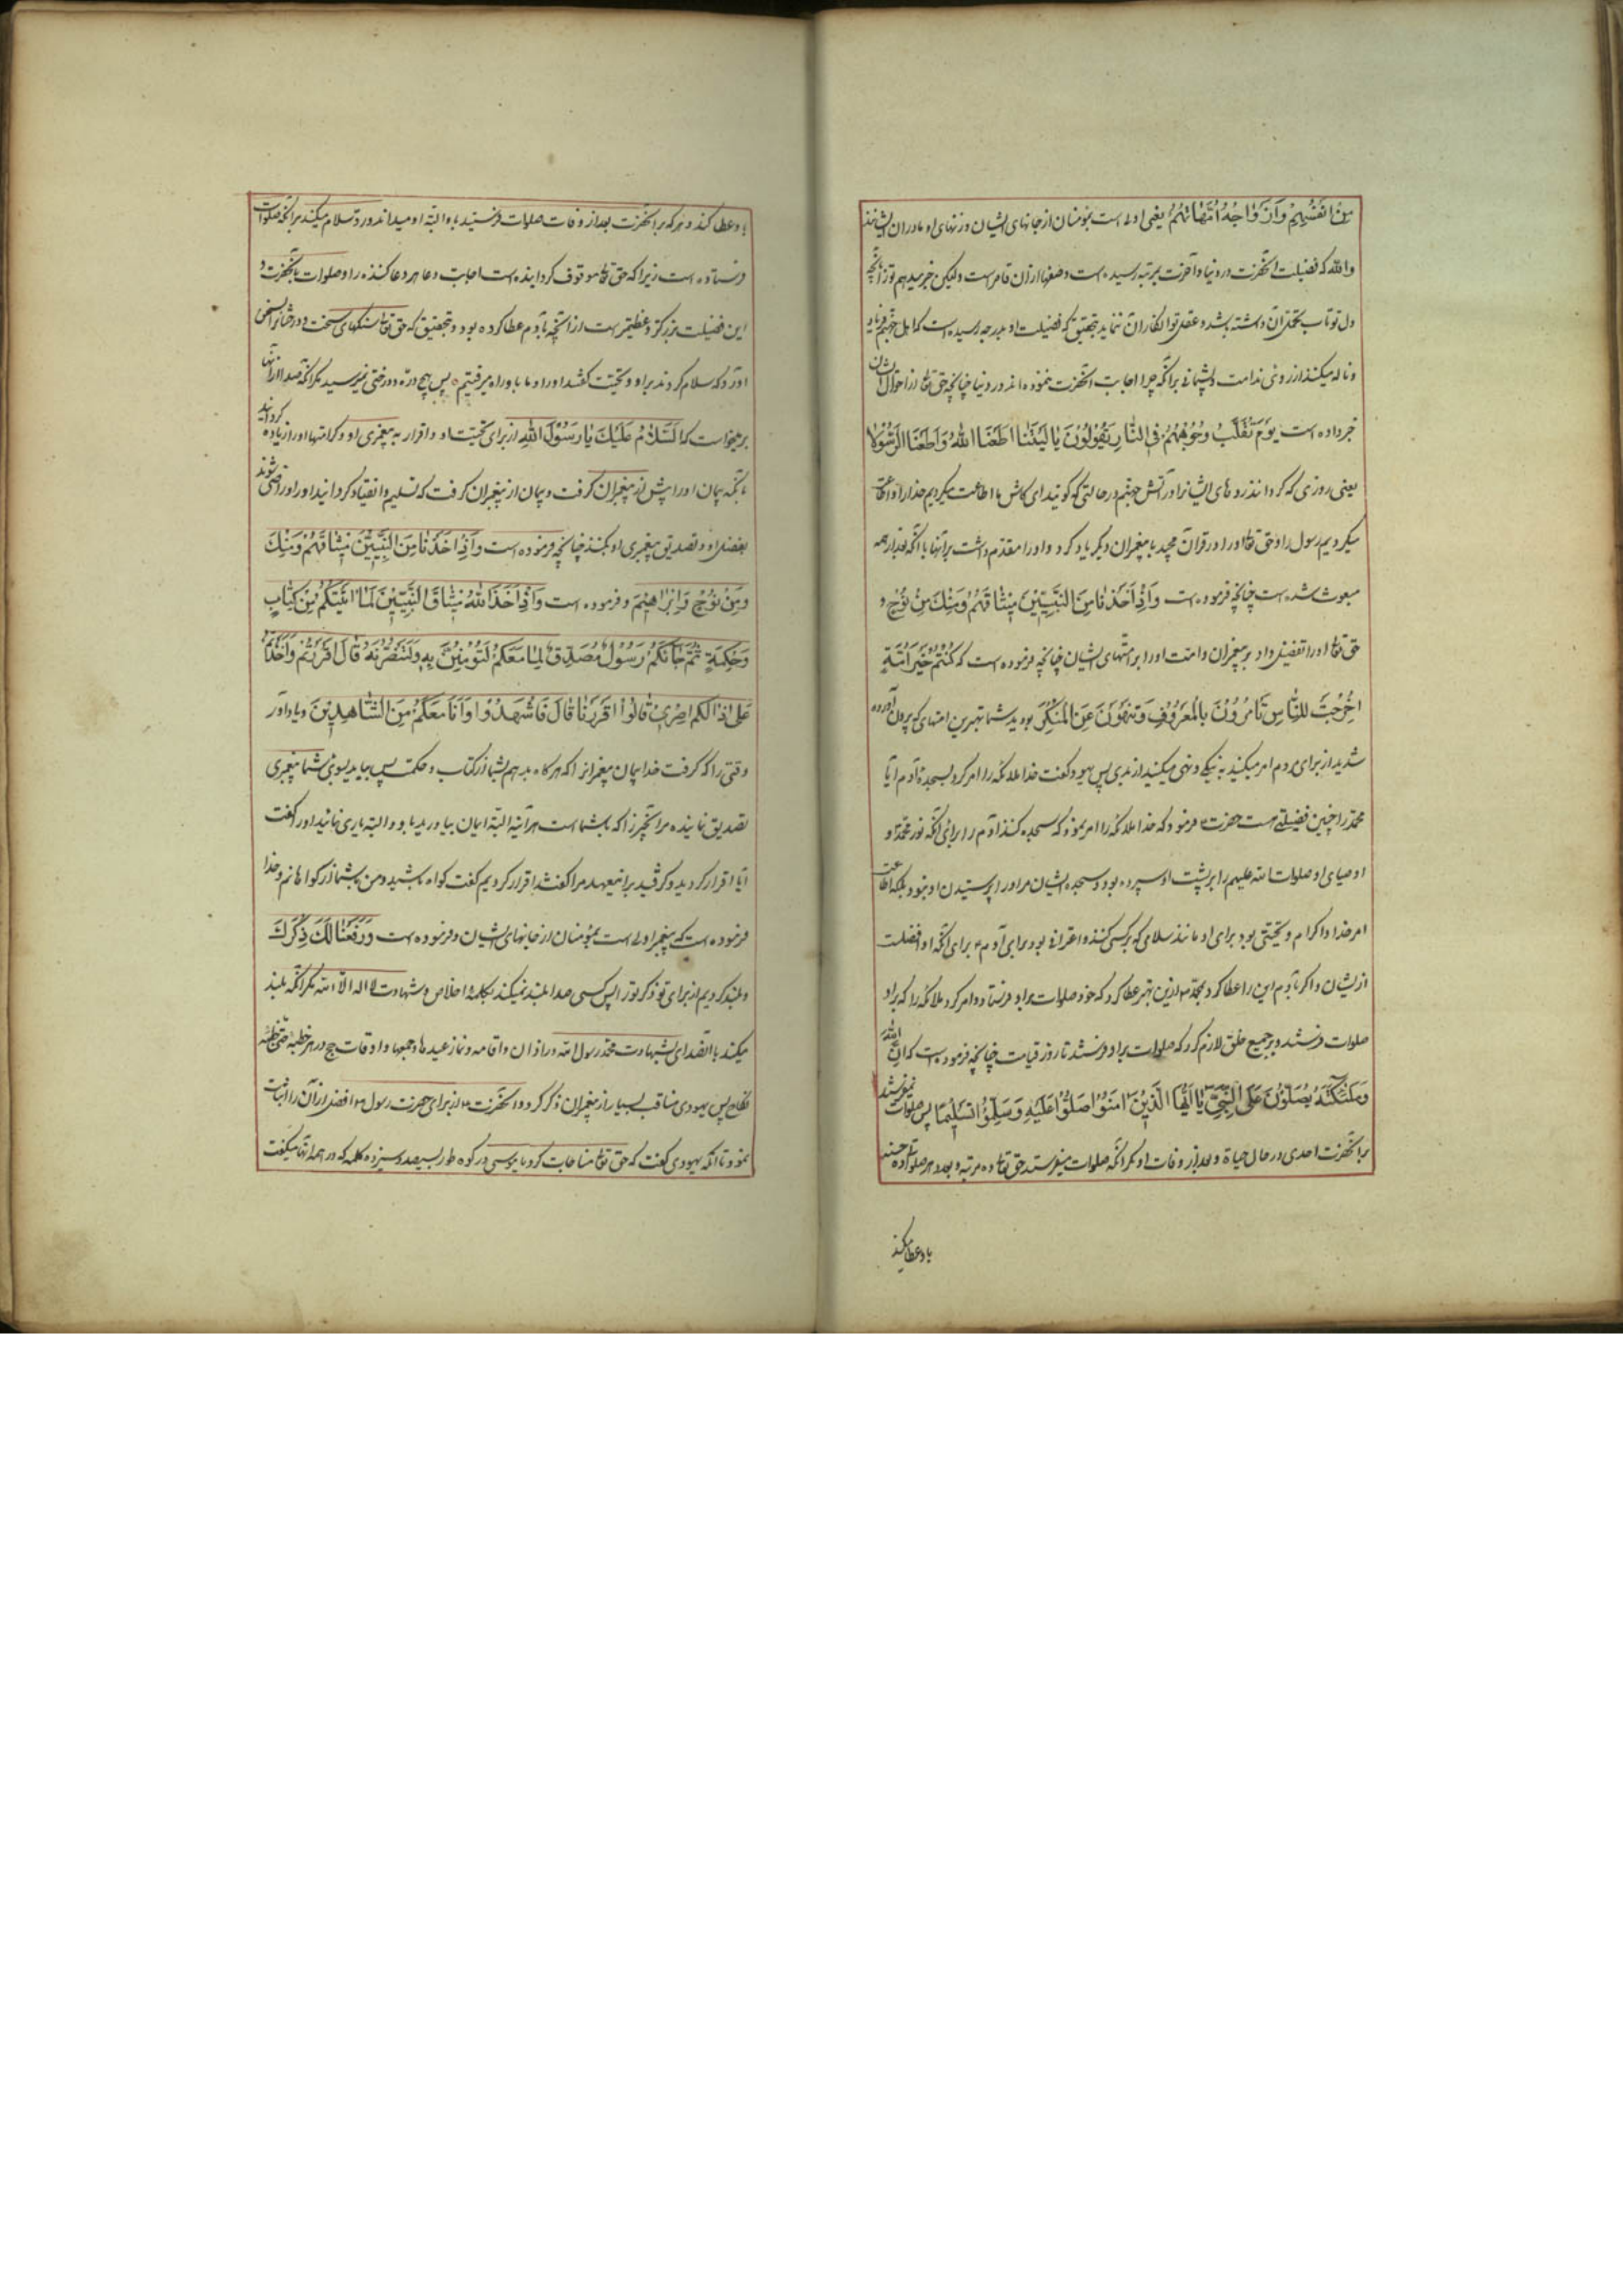 مِنْ اَنْفُسِهِمْ وَاَزْوَاجُهُ اُمَّهَاتُهُمْ یعنی اولی است بمؤمنان از جانهای ایشان و زنهای او مادران ایشانند
والله که فضیلت آنحضرت در دنیا و آخرت بمرتبه رسیده است وصفها از آن قاصر است ولیکن خبر میدهم تو را بآنچه
دل تو تاب تحمل آن داشته باشد و عقل تو انکار آن ننماید بتحقیق که فضیلت او بدرجه رسیده است که اهل جهنم فریاد
و ناله میکنند از روی ندامت و پشیمانی برآنکه چرا اجابت آنحضرت ننموده اند در دنیا چنانچه حق تعالی از احوال ایشان
خبر داده است یَوْمَ تُقَلَّبُ وُجُوهُهُمْ فِی النَّارِ یَقُولُونَ یَا لَیْتَنَا اَطَعْنَا اللهَ وَاَطَعْنَا الرَّسُولَا
یعنی روزی که گردانند روهای ایشانرا در آتش جهنم در حالتی که گویند ای کاش ما اطاعت میکردیم خدا را و اطاعت
میکردیم رسول را و حق تعالی او را در قرآن مجید با پیغمبران دیگر یاد کرد و او را مقدم داشت بر آنها با آنکه بعد از همه
مبعوث شده است چنانچه فرموده است وَاِذْ اَخَذْنَا مِنَ النَّبِیِّینَ مِیثَاقَهُمْ وَمِنْكَ وَمِنْ نُوحٍ و
حق تعالی او را تفضیل داد بر پیغمبران و امت او را بر امتهای ایشان چنانچه فرموده است که کُنْتُمْ خَیْرَ اُمَّةٍ
اُخْرِجَتْ لِلنَّاسِ تَأمُرُونَ بِالْمَعْرُوفِ وَتَنْهَوْنَ عَنِ الْمُنْکَرِ بودید شما بهترین امتهای که بیرون آورده
شدید از برای مردم امر میکنید به نیکی و نهی میکنید از بدی پس یهود گفت خدا ملائکه را امر کرد بسجده آدم آیا
محمد را چنین فضیلتی هست حضرت فرمود که خدا ملائکه را امر نمود که سجده کنند آدم را برای آنکه نور محمد و
اوصیای او صلوات الله علیهم را بر پشت او سپرده بود و سجده ایشان مر او را پرستیدن او نبود بلکه اطاعت
امر خدا و اکرام و تحیتی بود برای او مانند سلامی که بر کسی کنند و اعترافی بود برای آدم برای آنکه او افضلست
از ایشان و اگر بآدم این را عطا کرد بمحمد ازین بهتر عطا کرد که خود صلوات بر او فرستاد و امر کرد ملائکه را که بر او
صلوات فرستند و بر جمیع خلق لازم کرد که صلوات بر او فرستند تا روز قیامت چنانچه فرموده است که اِنَّ اللهَ
وَمَلٰئِکَتَهُ یُصَلُّونَ عَلَی النَّبِیِّ یَا اَیُّهَا الَّذِینَ اٰمَنُوا صَلُّوا عَلَیْهِ وَسَلِّمُوا تَسْلِیمًا پس صلوات نمیفرستد
بر آنحضرت احدی در حال حیاة و بعد از وفات او مگر آنکه صلوات میفرستد حق تعالی ده مرتبه و بعدد هر صلوات ده حسنه
باو عطا میکند
باو عطا کند و هر که بر آنحضرت بعد از وفات صلوات فرستد باو البته او میداند و رد سلام میکند بر آنکه صلوات
فرستاده است زیرا که حق تعالی موقوف گردانیده است اجابت دعا هر دعا کننده را و صلوات بآنحضرت و
این فضیلت بزرگتر و عظیمتر است از آنچه بآدم عطا کرده بود و بتحقیق که حق تعالی سنگهای سخت و درختانرا بسخن
آورد که سلام کردند بر او و تحیت گفتند او را و ما با او راه میرفتیم پس بهیچ دره و درختی نمیرسید مگر آنکه صدا از آنها
برمیخواست که اَلسَّلَامُ عَلَیْكَ یَا رَسُولَ اللهِ از برای تحیت او و اقرار به پیغمبری او و کرامتها او را زیاده گردانید
بآنکه پیمان او را پیش از پیغمبران گرفت و پیمان از پیغمبران گرفت که تسلیم و انقیاد کردانید او را و راضی شوند
بفضل او و تصدیق پیغمبری او بکنند چنانچه فرموده است وَاِذْ اَخَذْنَا مِنَ النَّبِیِّینَ مِیثَاقَهُمْ وَمِنْكَ
وَمِنْ نُوحٍ وَاِبْرَاهِیمَ و فرموده است وَاِذْ اَخَذَ اللهُ مِیثَاقَ النَّبِیِّینَ لَمَا اٰتَیْتُکُمْ مِنْ کِتَابٍ
وَحِکْمَةٍ ثُمَّ جَائَکُمْ رَسُولٌ مُصَدِّقٌ لِمَا مَعَکُمْ لَتُؤْمِنُنَّ بِهِ وَلَتَنْصُرُنَّهُ قَالَ اَقْرَرْتُمْ وَاَخَذْتُمْ
عَلَی ذَالِکُمْ اِصْرِی قَالُوا اَقْرَرْنَا قَالَ فَاشْهَدُوا وَاَنَا مَعَکُمْ مِنَ الشَّاهِدِینَ و یاد آور
وقتی را که گرفت خدا پیمان پیغمبرانرا که هر گاه بدهم بشما از کتاب و حکمت پس بیاید بسوی شما پیغمبری
تصدیق نماینده مر آنچیز را که باشماست هر آینه البته ایمان بیاورید باو و البته یاری نمائید او را گفت
آیا اقرار کردید و گرفتید بر این عهد مرا گفتند اقرار کردیم گفت گواه باشید و من باشما از گواهانم و خدا
فرموده است که پیغمبر اولی است بمؤمنان از جانهای ایشان و فرموده است وَرَفَعْنَا لَكَ ذِکْرَكَ
و بلند کردیم از برای تو ذکر تو را پس کسی صدا بلند نمیکند بکلمه اخلاص و شهادت لا اله الا الله مگر آنکه بلند
میکند با آن صدای بشهادت محمد رسول الله در اذان و اقامه و نماز عیدها و جمعها و اوقات حج و در هر خطبه حتی خطبه
نکاح پس یهودی مناقب بسیار از پیغمبران ذکر کرد و آنحضرت از برای حضرت رسول افضل از آن را اثبات
نمود تا آنکه یهودی گفت که حق تعالی مناجات کرد با موسی در کوه طور بسیصد و سیزده کلمه که در همه آنها میگفت